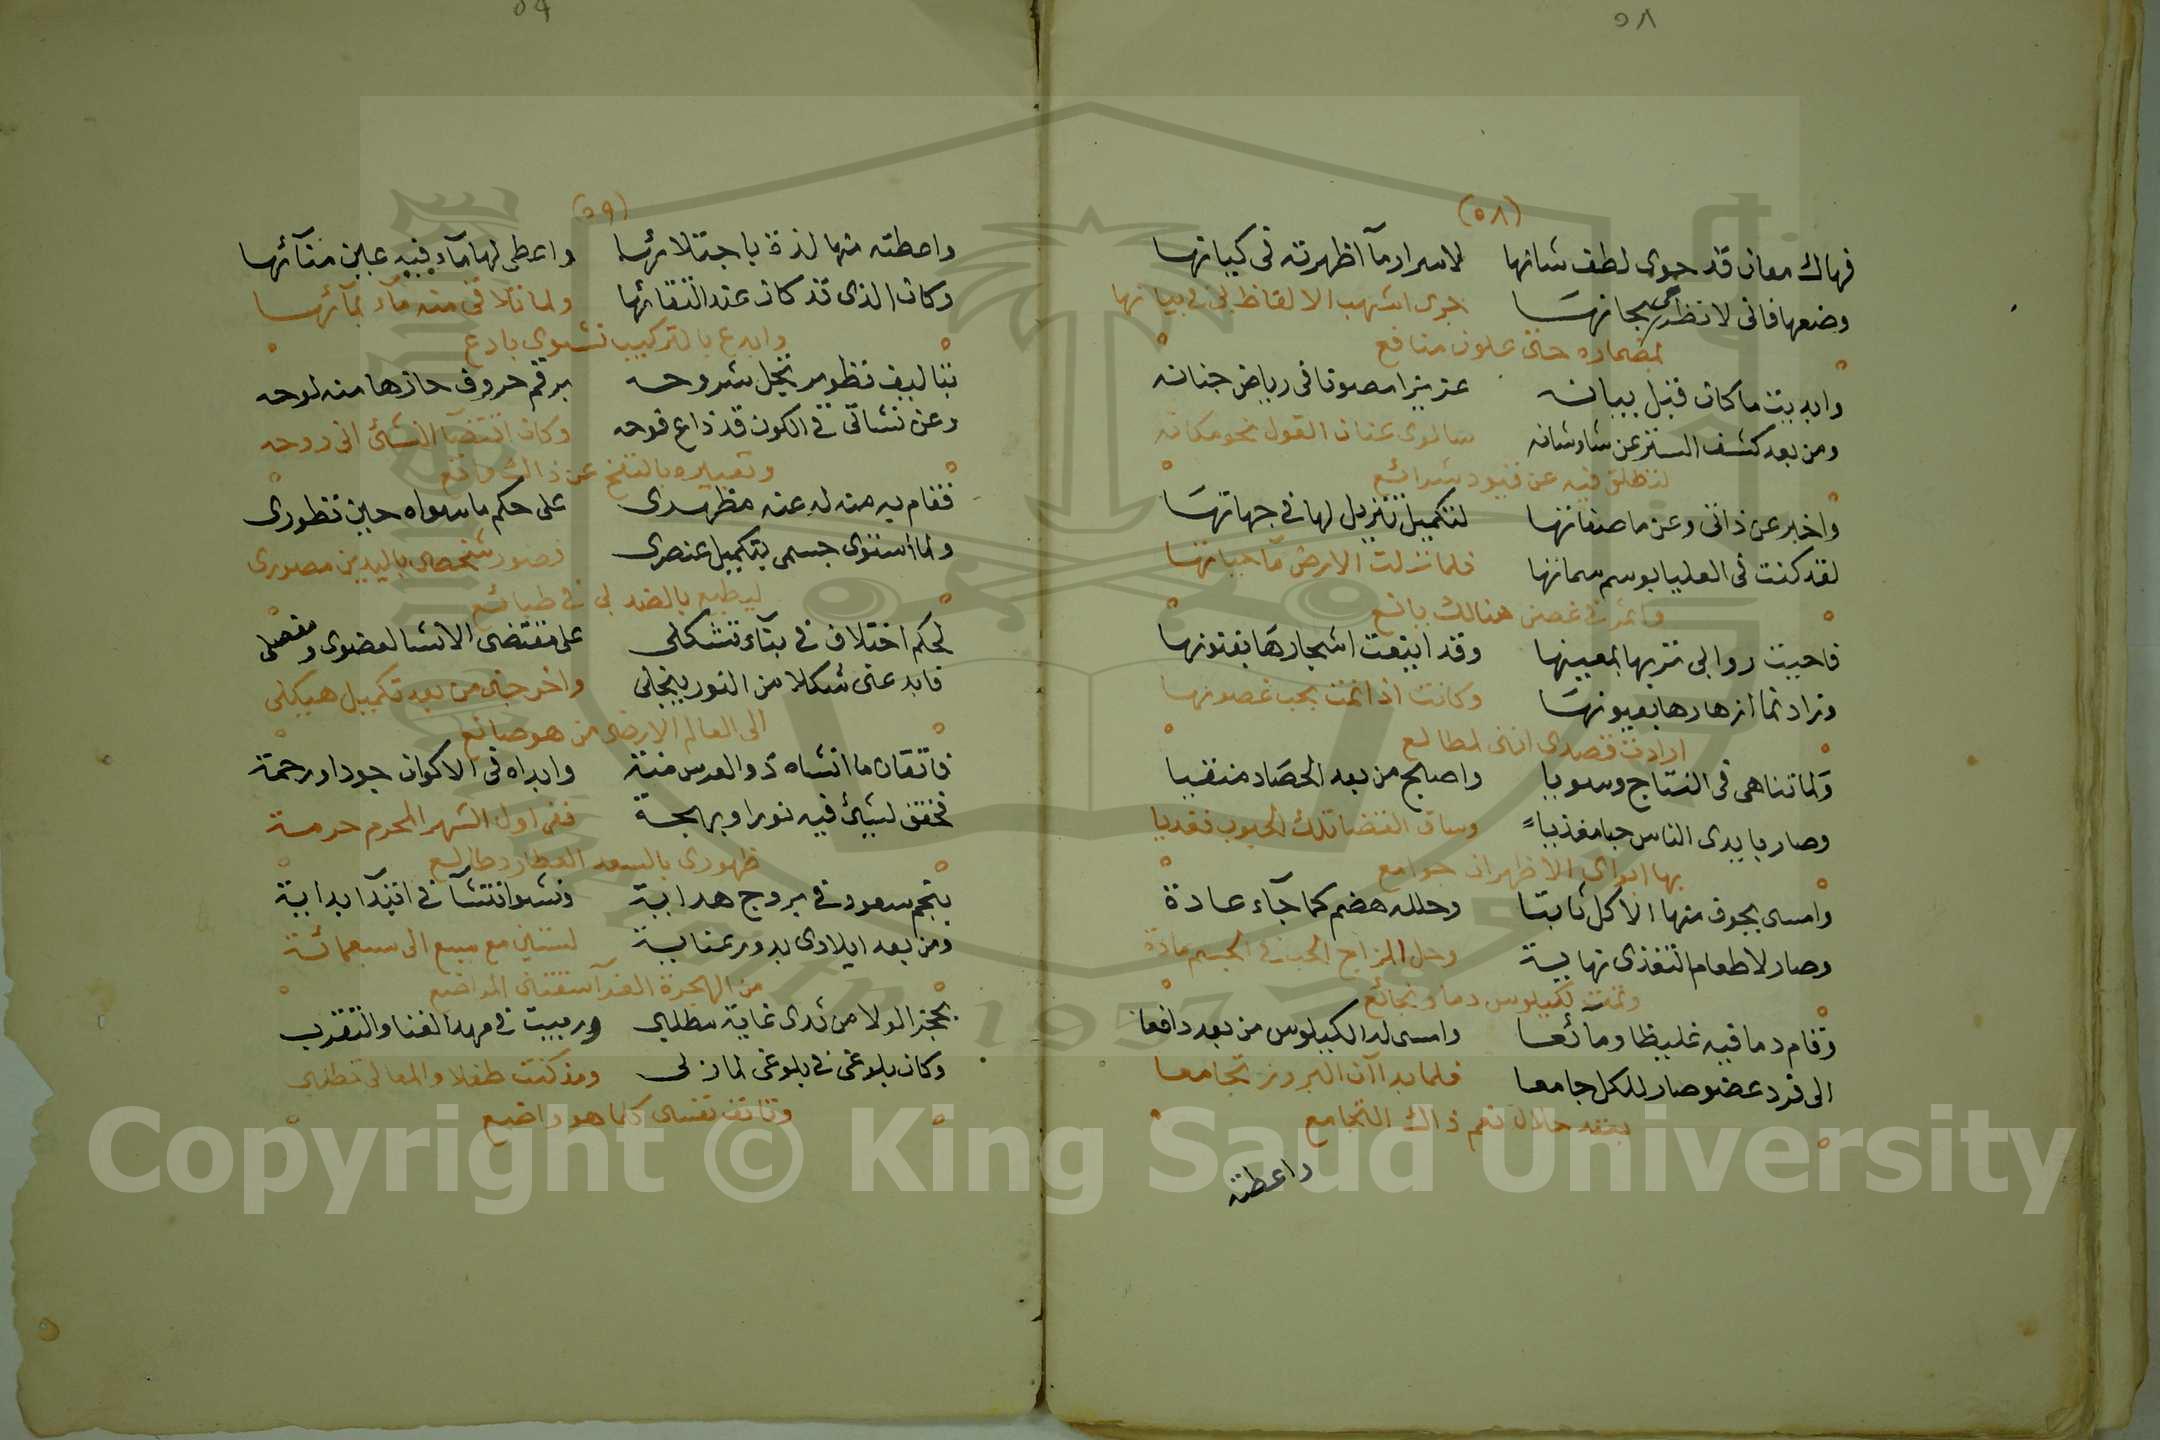 ٥٨
(٥٨)
فهاك معان قد حوى لطف شانها لاسرار مآ اظهرته فى كيانها
وضعها فانى لا نظير بجانها جرى اشهب الالفاظ لى فى بيانها
لمضماره حتى علون منافع
وابديت ما كان قبل بيانه عزيزا مصونا فى رياض جنانه
ومن بعد كشف الستر عن شاو شانه سالوى عنان القول نحو مكانه
لتطلق فيه عن قيود شرائع
واخبر عن ذاتى وعن ما صفاتها لتكميل تنزيل لها فى جهاتها
لقد كنت فى العليا بوسم سماتها فلما نزلت الارض مآ حياتها
واثمر فى غصن هنالك يانع
فاحييت روابى تربها بمعينها وقد اينعت اشجارها بفنونها
وزاد نما ازهارها بعيونها وكانت اذا تمت بحب غصونها
ارادت قصدى اننى لطالع
ولما تناهى فى النتاج وسويا واصبح من بعد الحصاد منقيا
وصار بايدى الناس حبا مغذياً وساق القضا تلك الحبوب فغديا
بها ابواى الاظهران جوامع
وامسى بجوف منها الاكل ثابتا وحلله هضم كما جآء عادة
وصار لاطعام التغذى نهاية وحل المزاج الحب فى الجسم مادة
وتمت لكيلوس دما ونجائع
وقام دما فيه غليظا ومآئعا وامسى له الكيلوس من بعد دافعا
الى فرد عضو صار للكل جامعا فلما بدا آن البروز تجامعا
بعقد حلال نعم ذاك التجامع
واعطته
٥٩
(٥٩)
واعطته منها لذة باجتلائها واعطى لها مآء فيه عين منآئها
وكان الذى قد كان عند التقائها ولما تلاقى منه مآء بمآئها
وابدع بالتركيب نشوى بادع
بتاليف تطوير تجلى شروحه برقم حروف حازها منه لوحه
وعن نشاتى فى الكون قد ذاع فوحه وكان اقتضآ الانشائى انى روحه
وتعبيره بالنفخ عن ذاك واقع
فقام به منه له عنه مظهرى على حكم ما سواه حين تطورى
ولما استوى جسمى بتكميل عنصرى فصور شخصى باليدين مصورى
ليطبع بالضد لى فى طبائع
لحكم اختلاف فى بنآء تشكلى على مقتضى الانشا لعضوى ومفصلى
فابدعنى شكلا من النور ينجلى واخرجنى من بعد تكميل هيكلى
الى العالم الارضى من هو صانع
فاتقان ما انشاه ذو العرش منة وابداه فى الاكوان جودا ورحمة
فحقق لشيئى فيه نورا وبهجة ففى اول الشهر المحرم حرمة
ظهورى بالسعد العطارد طالع
بنجم سعود فى بروج هداية ونشو انتشآ فى ابتدآ بداية
ومن بعد ايلادى بدور عناية لستين مع سبع الى سبعمائة
من الهجرة الغرآ سقتنى المراضع
بحجز الولا من ثدى غاية مطلبى وربيت فى مهد الفنا والتقرب
وكان بلوغى فى بلوغى لمازلى ومذ كنت طفلا والمعالى تطلبى
وتانف نفسى كلما هو واضع
Copyright © King Saud University
1957